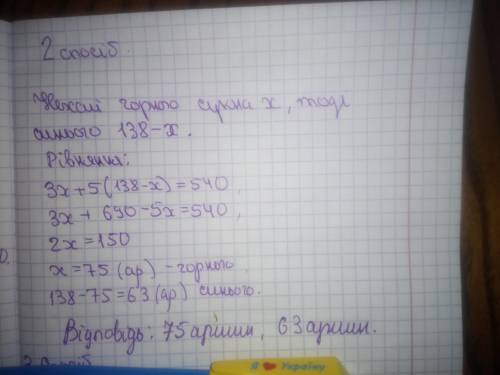 2 спосіб.
Нехай чорного сукна x, тоді
синього 138-x.
Рівняння:
3x+5(138-x)=540,
3x+690-5x=540,
2x=150
x=75 (ар) - чорного.
138-75=63(ар) синього.
Відповідь: 75 аршин, 63 аршин.
Я ❤ Україну